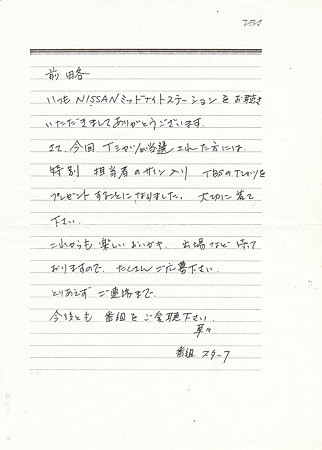 前略
いつもNISSANミッドナイトステーションをお聴き
いただきましてありがとうございます。
さて、今回Tシャツが当選された方には
特別 担当者のサイン入り TBSのTシャツを
プレゼントすることになりました。大切に着て
下さい。
これからも楽しいおハガキ、出場など待って
おりますので、たくさんご応募下さい。
とりあえずご連絡まで。
今後とも 番組をご愛聴下さい。
草々
番組スタッフ